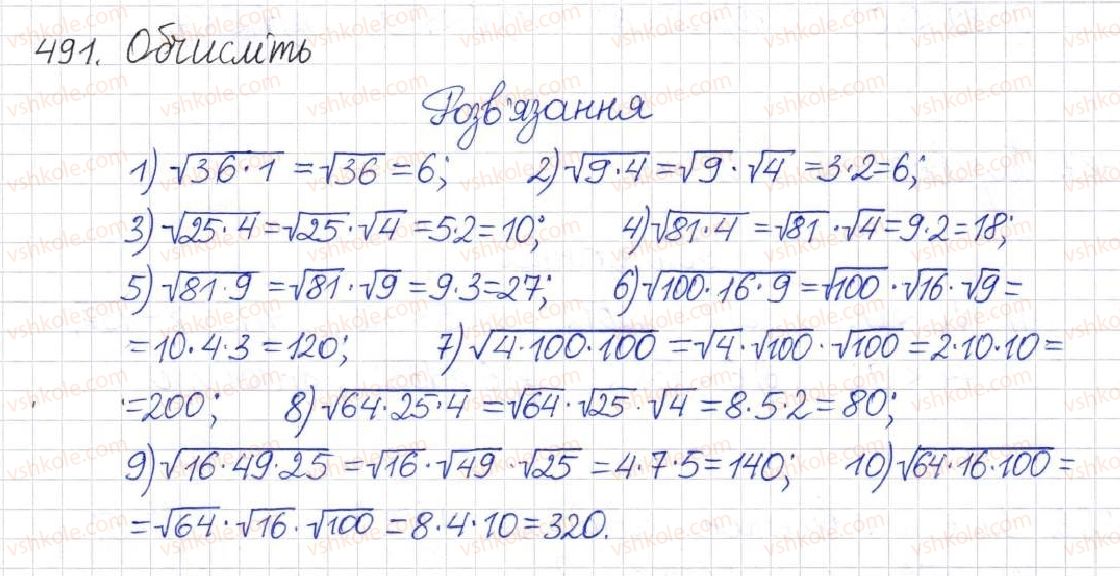 491. Обчисліть
Розв'язання
1) √36·1 = √36 = 6; 2) √9·4 = √9 · √4 = 3·2 = 6;
3) √25·4 = √25 · √4 = 5·2 = 10; 4) √81·4 = √81 · √4 = 9·2 = 18;
5) √81·9 = √81 · √9 = 9·3 = 27; 6) √100·16·9 = √100 · √16 · √9 =
= 10·4·3 = 120; 7) √4·100·100 = √4 · √100 · √100 = 2·10·10 =
= 200; 8) √64·25·4 = √64 · √25 · √4 = 8·5·2 = 80;
9) √16·49·25 = √16 · √49 · √25 = 4·7·5 = 140; 10) √64·16·100 =
= √64 · √16 · √100 = 8·4·10 = 320.
vshkole.com